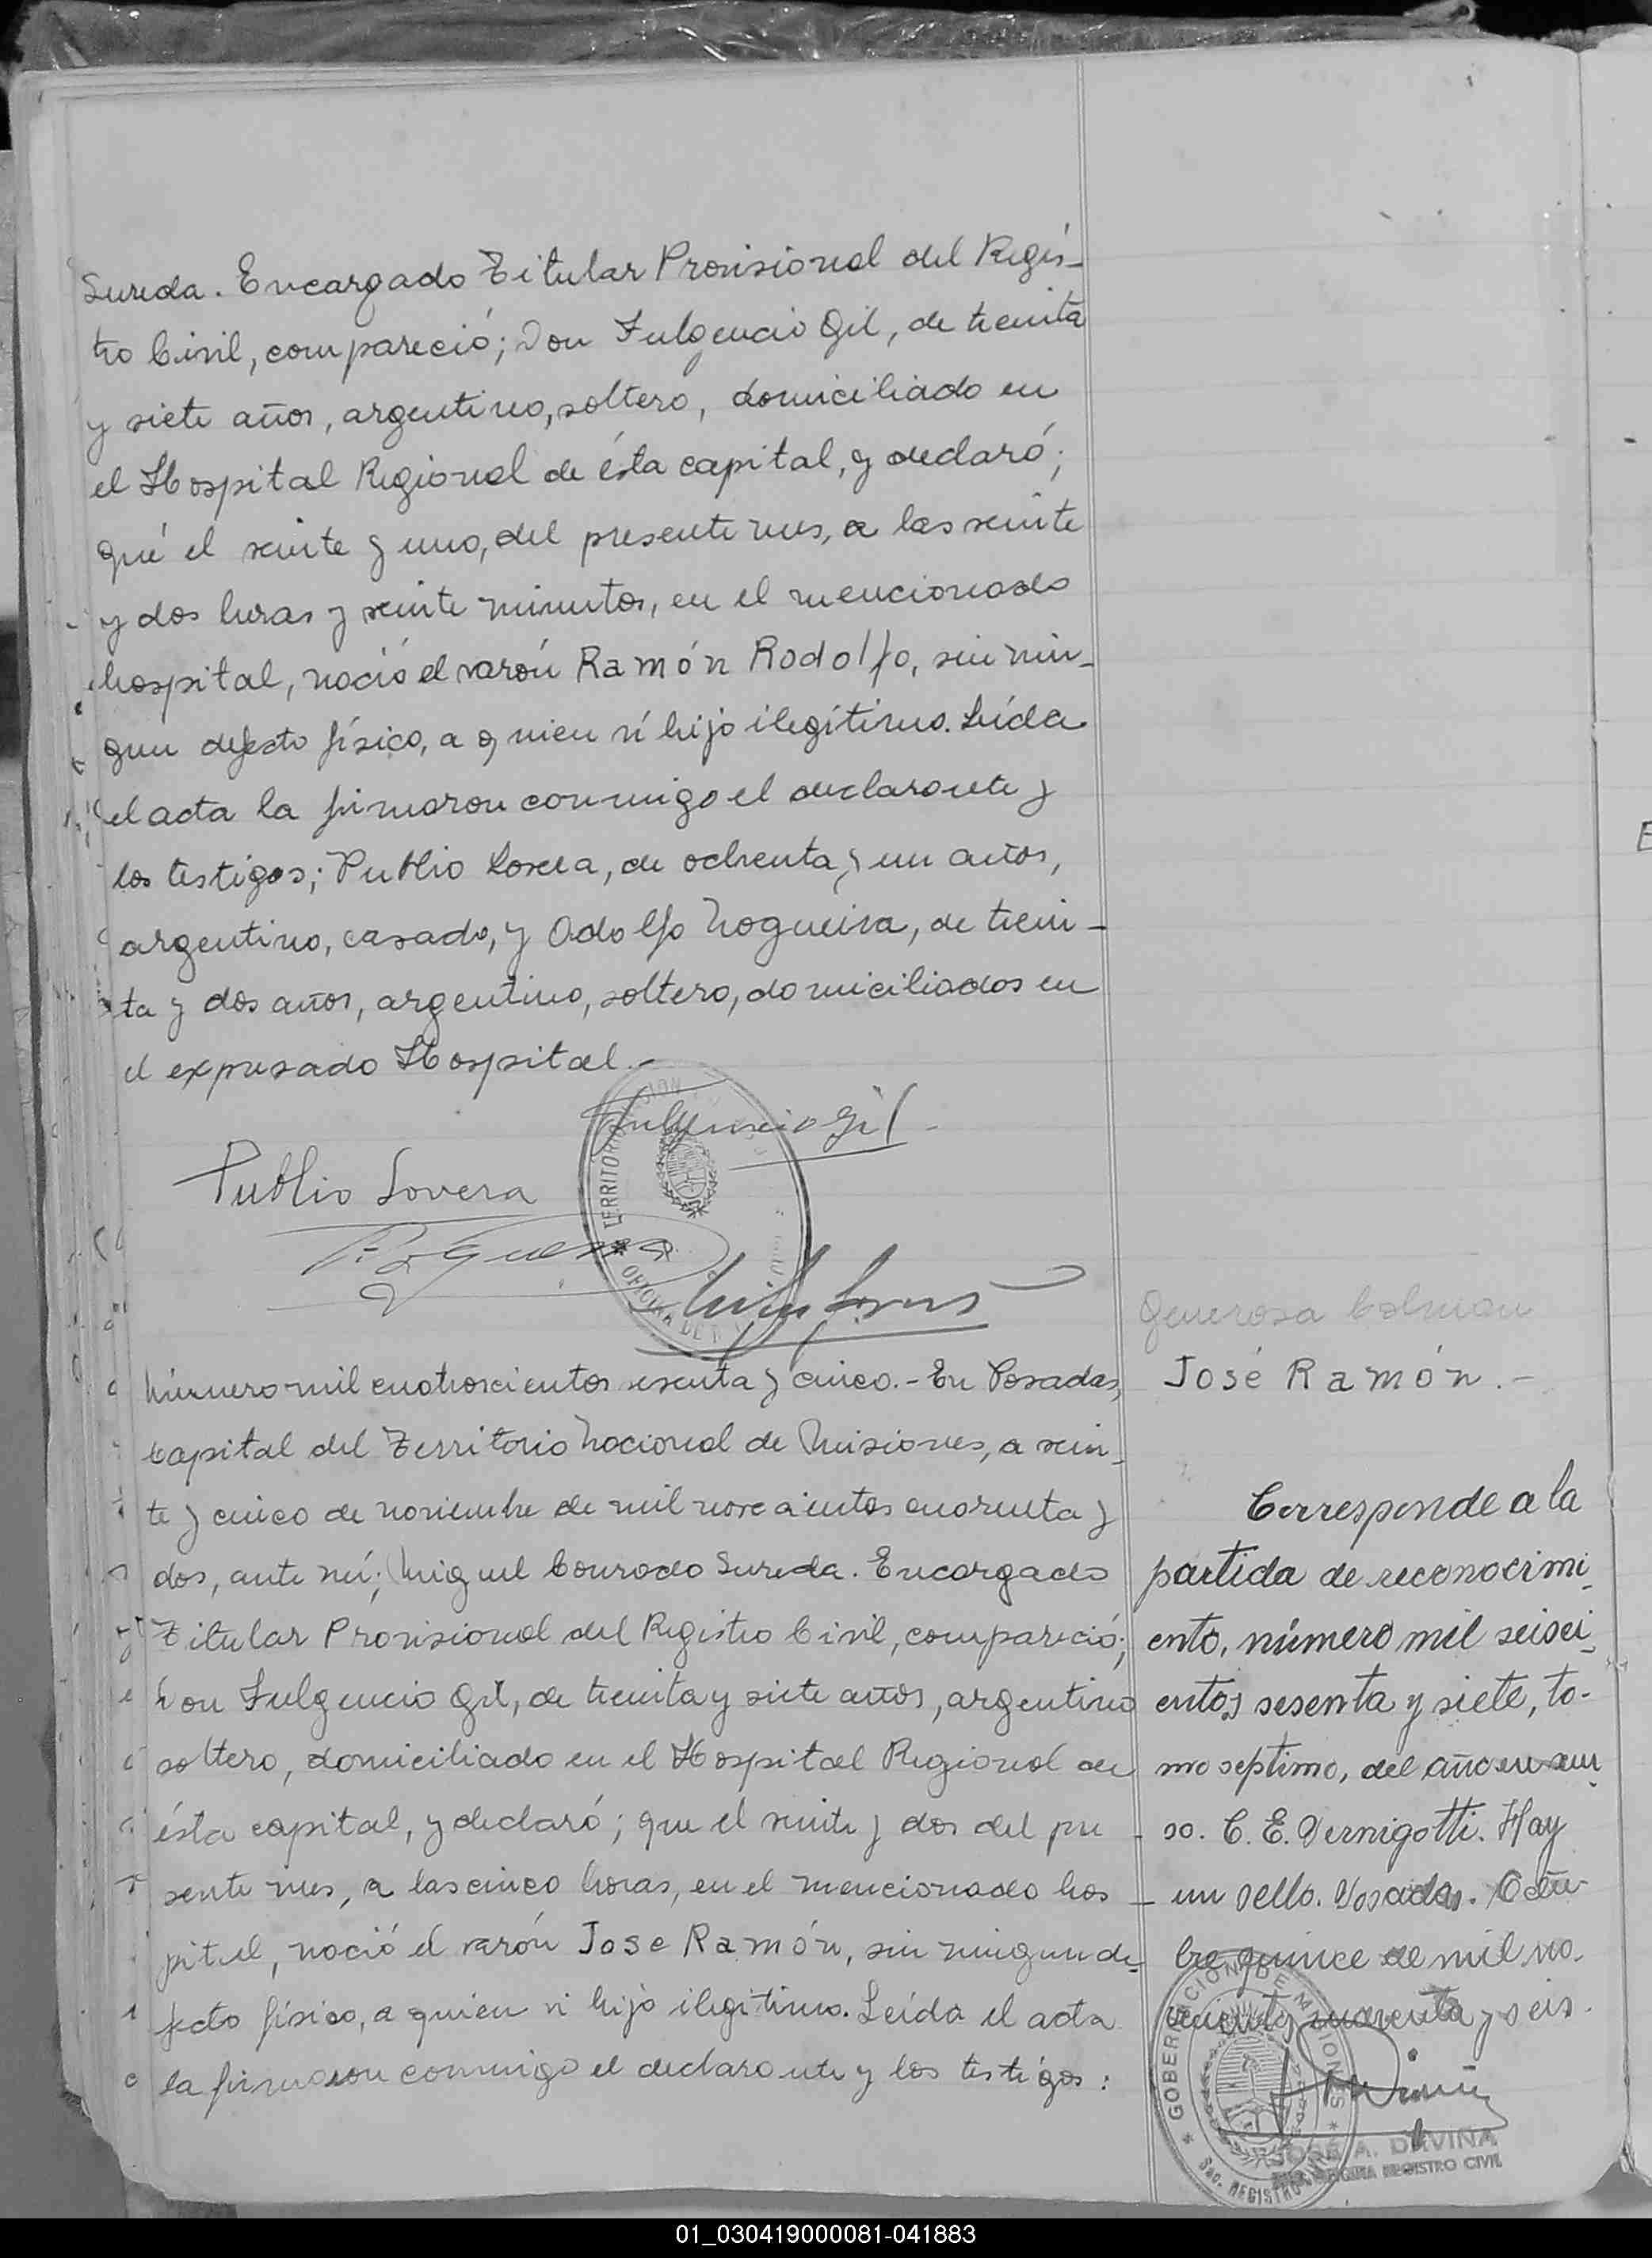 Sureda. Encargado Titular Provisional del Regis-
tro Civil, compareció; Don Fulgencio Gil, de treinta
y siete años, argentino, soltero, domiciliado en
el Hospital Regional de ésta capital, y declaró;
qué el veinte y uno, del presente mes, a las veinte
y dos horas y veinte minutos, en el mencionado
hospital, nació el varón Ramón Rodolfo, sin nin-
gun defecto físico, a quien ví hijo ilegítimo. Leída
el acta la firmaron conmigo el declarante y
los testigos; Publio Lovera, de ochenta y un años,
argentino, casado, y Adolfo Nogueira, de trein-
ta y dos años, argentino, soltero, domiciliados en
el expresado Hospital.-
Fulgencio Gil -
Publio Lovera
TERRITORIO
OFICINA DE
Número mil cuatroscientos sesenta y cinco.- En Posadas,
Capital del Territorio Nacional de Misiones, a vein-
te y cinco de noviembre de mil novecientos cuarenta y
dos, ante mí; Miguel Conrado Sureda. Encargado
Titular Provisional del Registro Civil, compareció;
Don Fulgencio Gil, de treinta y siete años, argentino
soltero, domiciliado en el Hospital Regional de
ésta capital, y declaró; que el veinte y dos del pre-
sente mes, a las cinco horas, en el mencionado hos-
pital, nació el varón Jose Ramón, sin ningun de-
fecto físico, a quien ví hijo ilegítimo. Leída el acta
la firmaron conmigo el declarante y los testigos:
Generosa Colman
José Ramón.-
Corresponde a la
partida de reconocimi-
ento, número mil seisci-
entos sesenta y siete, to-
mo septimo, del año en cur-
so. C. E. Vernigotti. Hay
un sello. Posadas. Octu-
bre quince de mil no-
vecientos cuarenta y seis.
GOBERNACION DE MISIONES
Sec. REGISTRO CIVIL
JOSÉ A. DAVIÑA
REGISTRO CIVIL
01_030419000081-041883